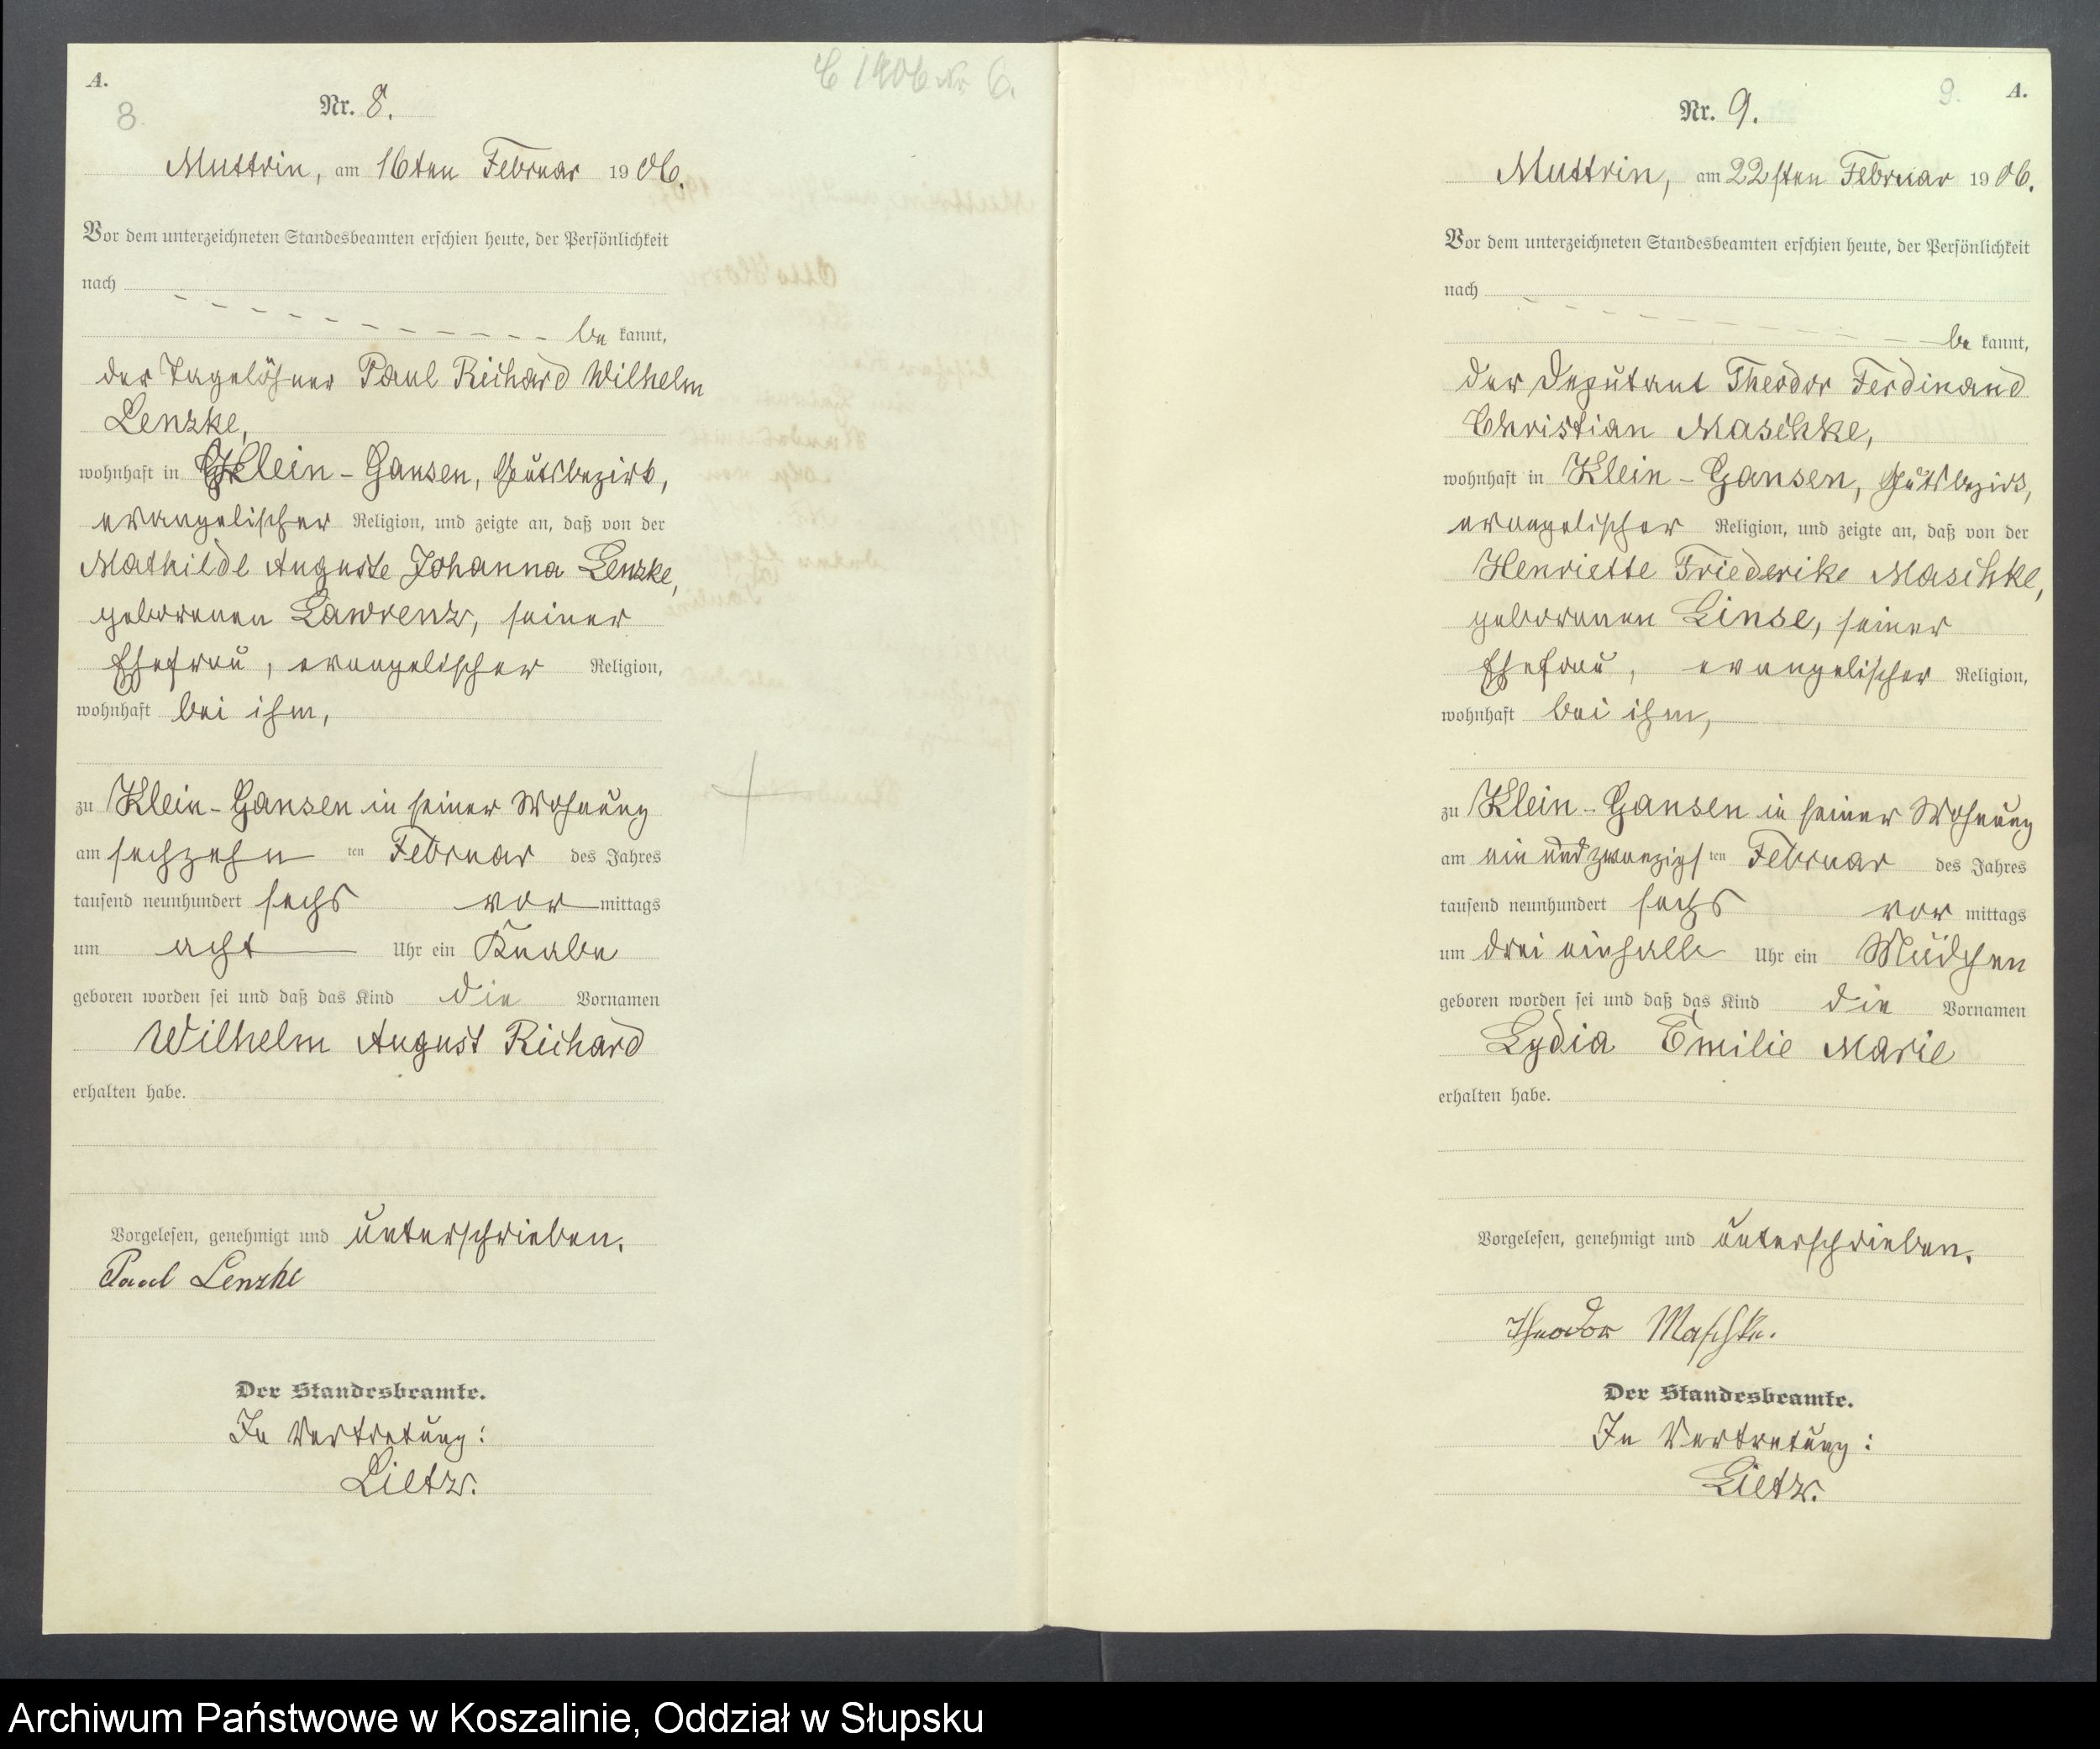 A.
8.
C 1906 Nr 6.
Nr. 8.
Muttrin, am 16ten Februar 1906.
Vor dem unterzeichneten Standesbeamten erschien heute, der Persönlichkeit
nach
be kannt,
der Tagelöhner Paul Richard Wilhelm
Lenzke,
wohnhaft in Klein-Gansen, Gutsbezirk,
evangelischer Religion, und zeigte an, daß von der
Mathilde Auguste Johanna Lenzke,
geborenen Lawrenz, seiner
Ehefrau, evangelischer Religion,
wohnhaft bei ihm,
zu Klein-Gansen in seiner Wohnung
am sechzehn ten Februar des Jahres
tausend neunhundert sechs vor mittags
um acht Uhr ein Knabe
geboren worden sei und daß das Kind die Vornamen
Wilhelm August Richard
erhalten habe.
Vorgelesen, genehmigt und unterschrieben.
Paul Lenzke
Der Standesbeamte.
In Vertretung:
Lietz.
9. A.
Nr. 9.
Muttrin, am 22sten Februar 1906.
Vor dem unterzeichneten Standesbeamten erschien heute, der Persönlichkeit
nach
be kannt,
der Deputant Theodor Ferdinand
Christian Maschke,
wohnhaft in Klein-Gansen, Gutsbezirk,
evangelischer Religion, und zeigte an, daß von der
Henriette Friederike Maschke,
geborenen Linse, seiner
Ehefrau, evangelischer Religion,
wohnhaft bei ihm,
zu Klein-Gansen in seiner Wohnung
am ein und zwanzigs ten Februar des Jahres
tausend neunhundert sechs vor mittags
um drei einhalb Uhr ein Mädchen
geboren worden sei und daß das Kind die Vornamen
Lydia Emilie Marie
erhalten habe.
Vorgelesen, genehmigt und unterschrieben.
Theodor Maschke.
Der Standesbeamte.
In Vertretung:
Lietz.
Archiwum Państwowe w Koszalinie, Oddział w Słupsku